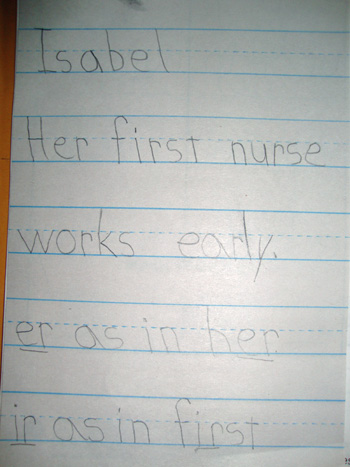 Isabel
Her first nurse
works early.
er as in her
ir as in first